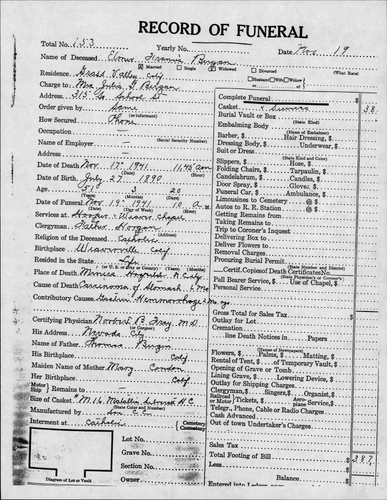 RECORD OF FUNERAL
Total No. 153 Yearly No. Date Nov. 19
Name of Deceased Francis Bergan
Married Single Widowed Divorced
Husband Wife Widow of (What Race)
Residence Grass Valley, Calif
Charge to Mrs. Julia F. Bergan
Address 315 So. School St
Order given by Same
(or informant)
How Secured Phone
Occupation
(Social Security Number)
Name of Employer
Address
Date of Death Nov. 17 1941 11:45 am
Date of Birth July 27 1890
Age 51 3 20
Date of Funeral Nov. 19 1941 10 a. M
Services at Hooper & Weaver Chapel
Clergyman Father Horgan
Religion of the Deceased Catholic
Birthplace Weaverville Calif
Resided in the State Life
(or U. S. or City or County)
Place of Death Miners Hospital N. City
Cause of Death Carcinoma of Stomach 6 Mo
Contributory Causes Hemorrhage
Certifying Physician Norbert B. Frey M.D.
His Address Nevada City
Name of Father Thomas Bergin
His Birthplace Calif
Maiden Name of Mother Mary Condon
Her Birthplace Calif
Motor Ship Remains to
Size of Casket
(State Color and Number)
Manufactured by
Interment at Catholic Cemetery Crematory
Lot No.
Grave No.
Section No.
Owner
Diagram of Lot or Vault
Complete Funeral
Casket 38
Burial Vault or Box
(State Kind)
Embalming Body
(Name of Embalmer)
Barber, Hair Dressing,
Dressing Body, Underwear,
Suit or Dress
(State Kind and Color)
Slippers, Hose,
Folding Chairs, Tarpaulin,
Candelabrum, Candles,
Door Spray, Gloves,
Funeral Car, Ambulance,
Limousines to Cemetery @
Autos to R. R. Station @
Getting Remains from
Taking Remains to
Trip to Coroner's Inquest
Delivering Box to
Deliver Flowers to
Removal Charges
Procuring Burial Permit
(State Number and District)
Certif. Copies of Death Certificates No.
Pall Bearer Service Use of Chapel,
Personal Service
Gross Total for Sales Tax
Outlay for Lot
Cremation
line Death Notices in Papers
(Names of Newspapers)
Flowers, Palms, Matting,
Rental of Tent, of Temporary Vault,
Opening of Grave or Tomb
Lining Grave, Lowering Device,
Outlay for Shipping Charges
Clergyman, Singers, Organist,
Railroad Motor Tickets, Aeroplane service
Telegr., Phone, Cable or Radio Charges
Cash Advanced
Out of town Undertaker's Charges
Sales Tax
Total Footing of Bill 387
Less
Balance